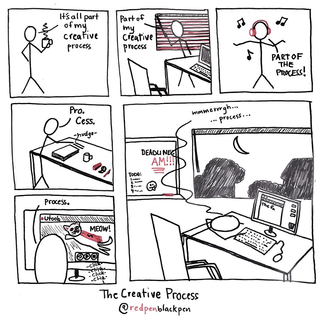 It's all part
of my
creative
process
Part of
my
creative
process
PART OF
THE
PROCESS!
Pro.
Cess.
-nudge-
Process.
MEOW!
-click-
-click-
-click-
mmmmrrgh...
...process...
DEADLINE:
AM!!!
TODO:
The Creative Process
@redpenblackpen